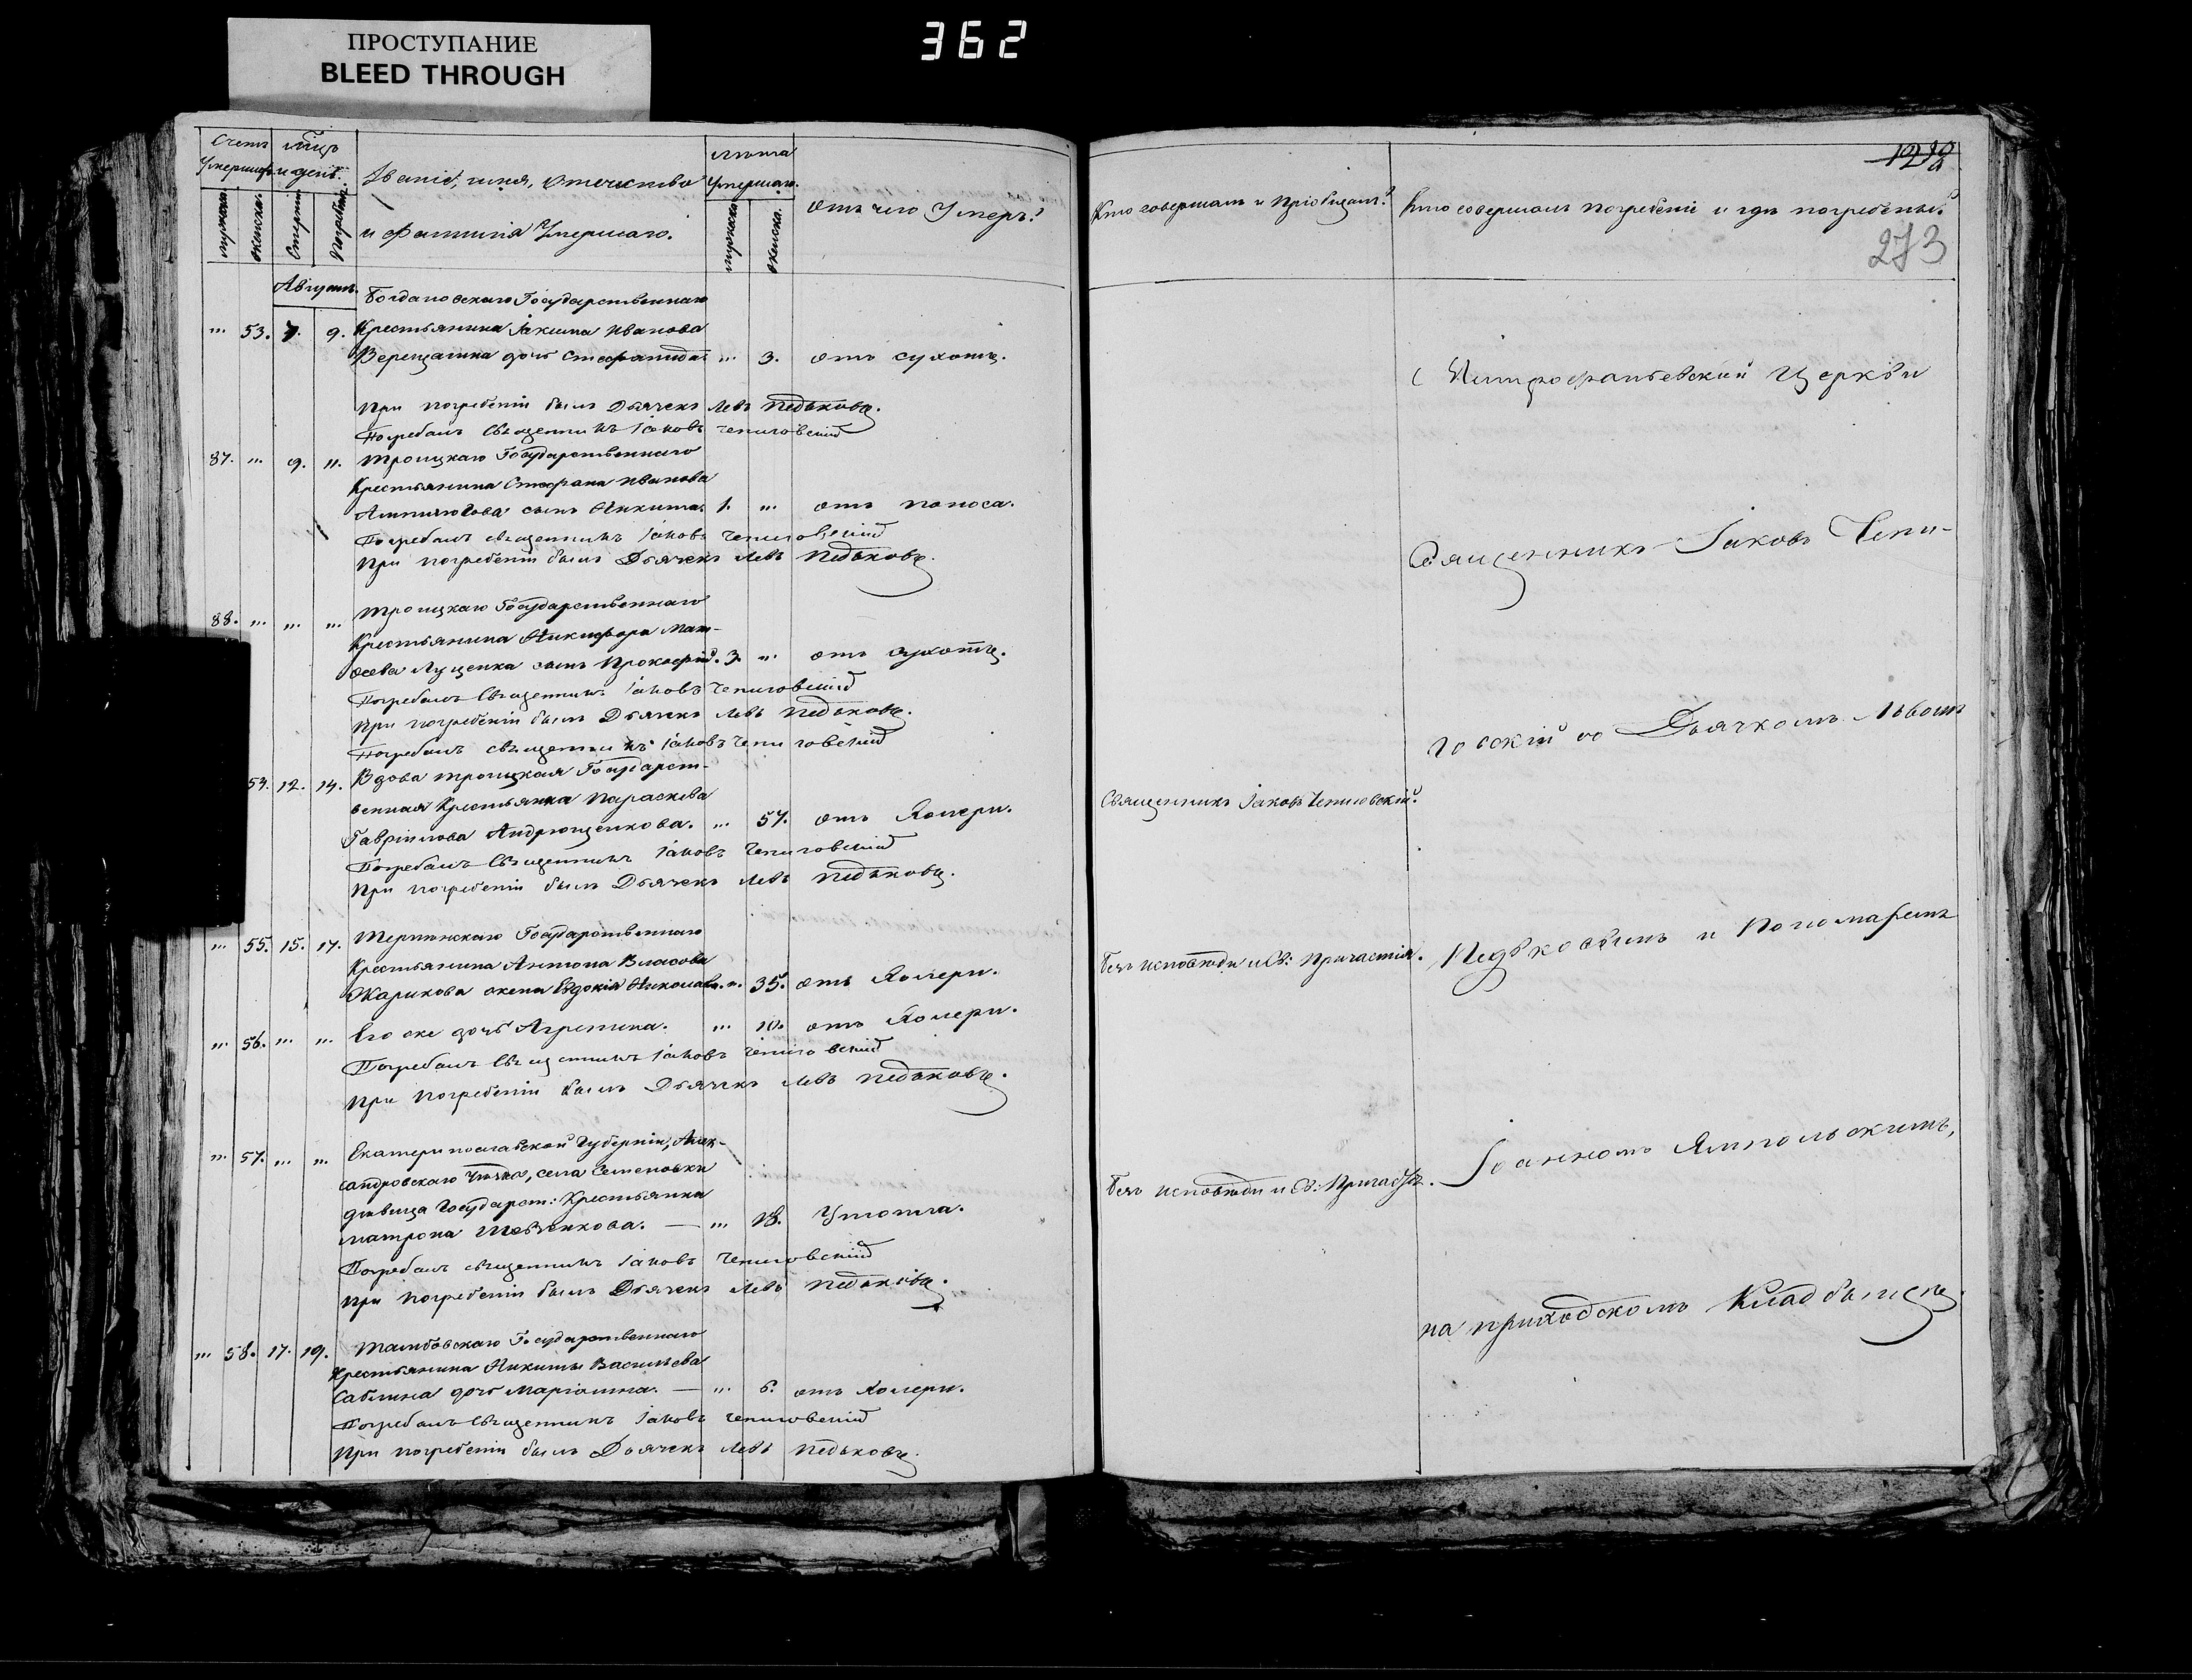 ПРОСТУПАНИЕ
BLEED THROUGH
362
Счетъ Умершихъ
мѣсяцъ и день.
Званіе, имя, отечество
и Фамилія Умершаго.
Лѣта Умершаго.
отъ чего Умеръ?
мужска.
женска.
Смерти
Погребен.
мужска
женска.
Августъ.
Богдановскаго Государственнаго
"" 53. 7. 9. Крестьянина Іакима Иванова
Верещагина дочь Стефанида. "" 3. отъ сухотъ.
При погребеніи былъ Дьячекъ Левъ Педьковъ.
Погребалъ Священникъ Іаковъ Чепиговскій
87. "" 9. 11. Троицкаго Государственнаго
Крестьянина Стефана Иванова
сынъ Никита. 1. "" отъ поноса.
Погребалъ священникъ Іаковъ Чепиговскій
При погребеніи былъ Дьячекъ Левъ Педьковъ.
88. "" "" "" Троицкаго Государственнаго
Крестьянина Никифора Мат-
фѣева Луценка сынъ Прокофій. 3. "" отъ сухотъ.
Погребалъ Священникъ Іаковъ Чепиговскій
При погребеніи былъ Дьячекъ Левъ Педьковъ.
Погребалъ священникъ Іаковъ Чепиговскій
54. 12. 14. Вдова Троицкая Государст-
венная Крестьянка Параскева
Гавріилова Андрющенкова. "" 57. отъ Холеры.
Погребалъ Священникъ Іаковъ Чепиговскій
При погребеніи былъ Дьячекъ Левъ Педьковъ.
"" 55. 15. 17. Терпянскаго Государственнаго
Крестьянина Антона Власова
Жарикова жена Евдокія Николаева. "" 35. отъ Холеры.
"" 56. "" "" Его же дочь Агрипина. "" 10. отъ Холеры.
Погребалъ Священникъ Іаковъ Чепиговскій
При погребеніи былъ Дьячекъ Левъ Педьковъ.
"" 57. "" "" Екатеринославской Губерніи, Алек-
сандровскаго Уѣзда, села Семеновки
дѣвица Государст: Крестьянка
Матрона Шевченкова. — "" 18. Утопла.
Погребалъ священникъ Іаковъ Чепиговскій
При погребеніи былъ Дьячекъ Левъ Педьковъ.
"" 58. 17. 19. Тамбовскаго Государственнаго
Крестьянина Никиты Васильева
Саблина дочь Маріамна. — "" 6. отъ Холеры.
Погребалъ Священникъ Іаковъ Чепиговскій
При погребеніи былъ Дьячекъ Левъ Педьковъ.
Кто совершалъ и пріобщалъ?
Кто совершалъ погребеніе и гдѣ погребены?
273
Митрофаніевской Церкви
Священникъ Іаковъ Чепи-
говскій со Дьячкомъ Львомъ
Священникъ Іаковъ Чепиговскій.
Безъ исповѣди и Св: Причастія.
Педьковымъ и Пономаремъ
Безъ исповѣди и Св: Причастія.
Іоанномъ Ямпольскимъ,
на приходскомъ Кладбищѣ.